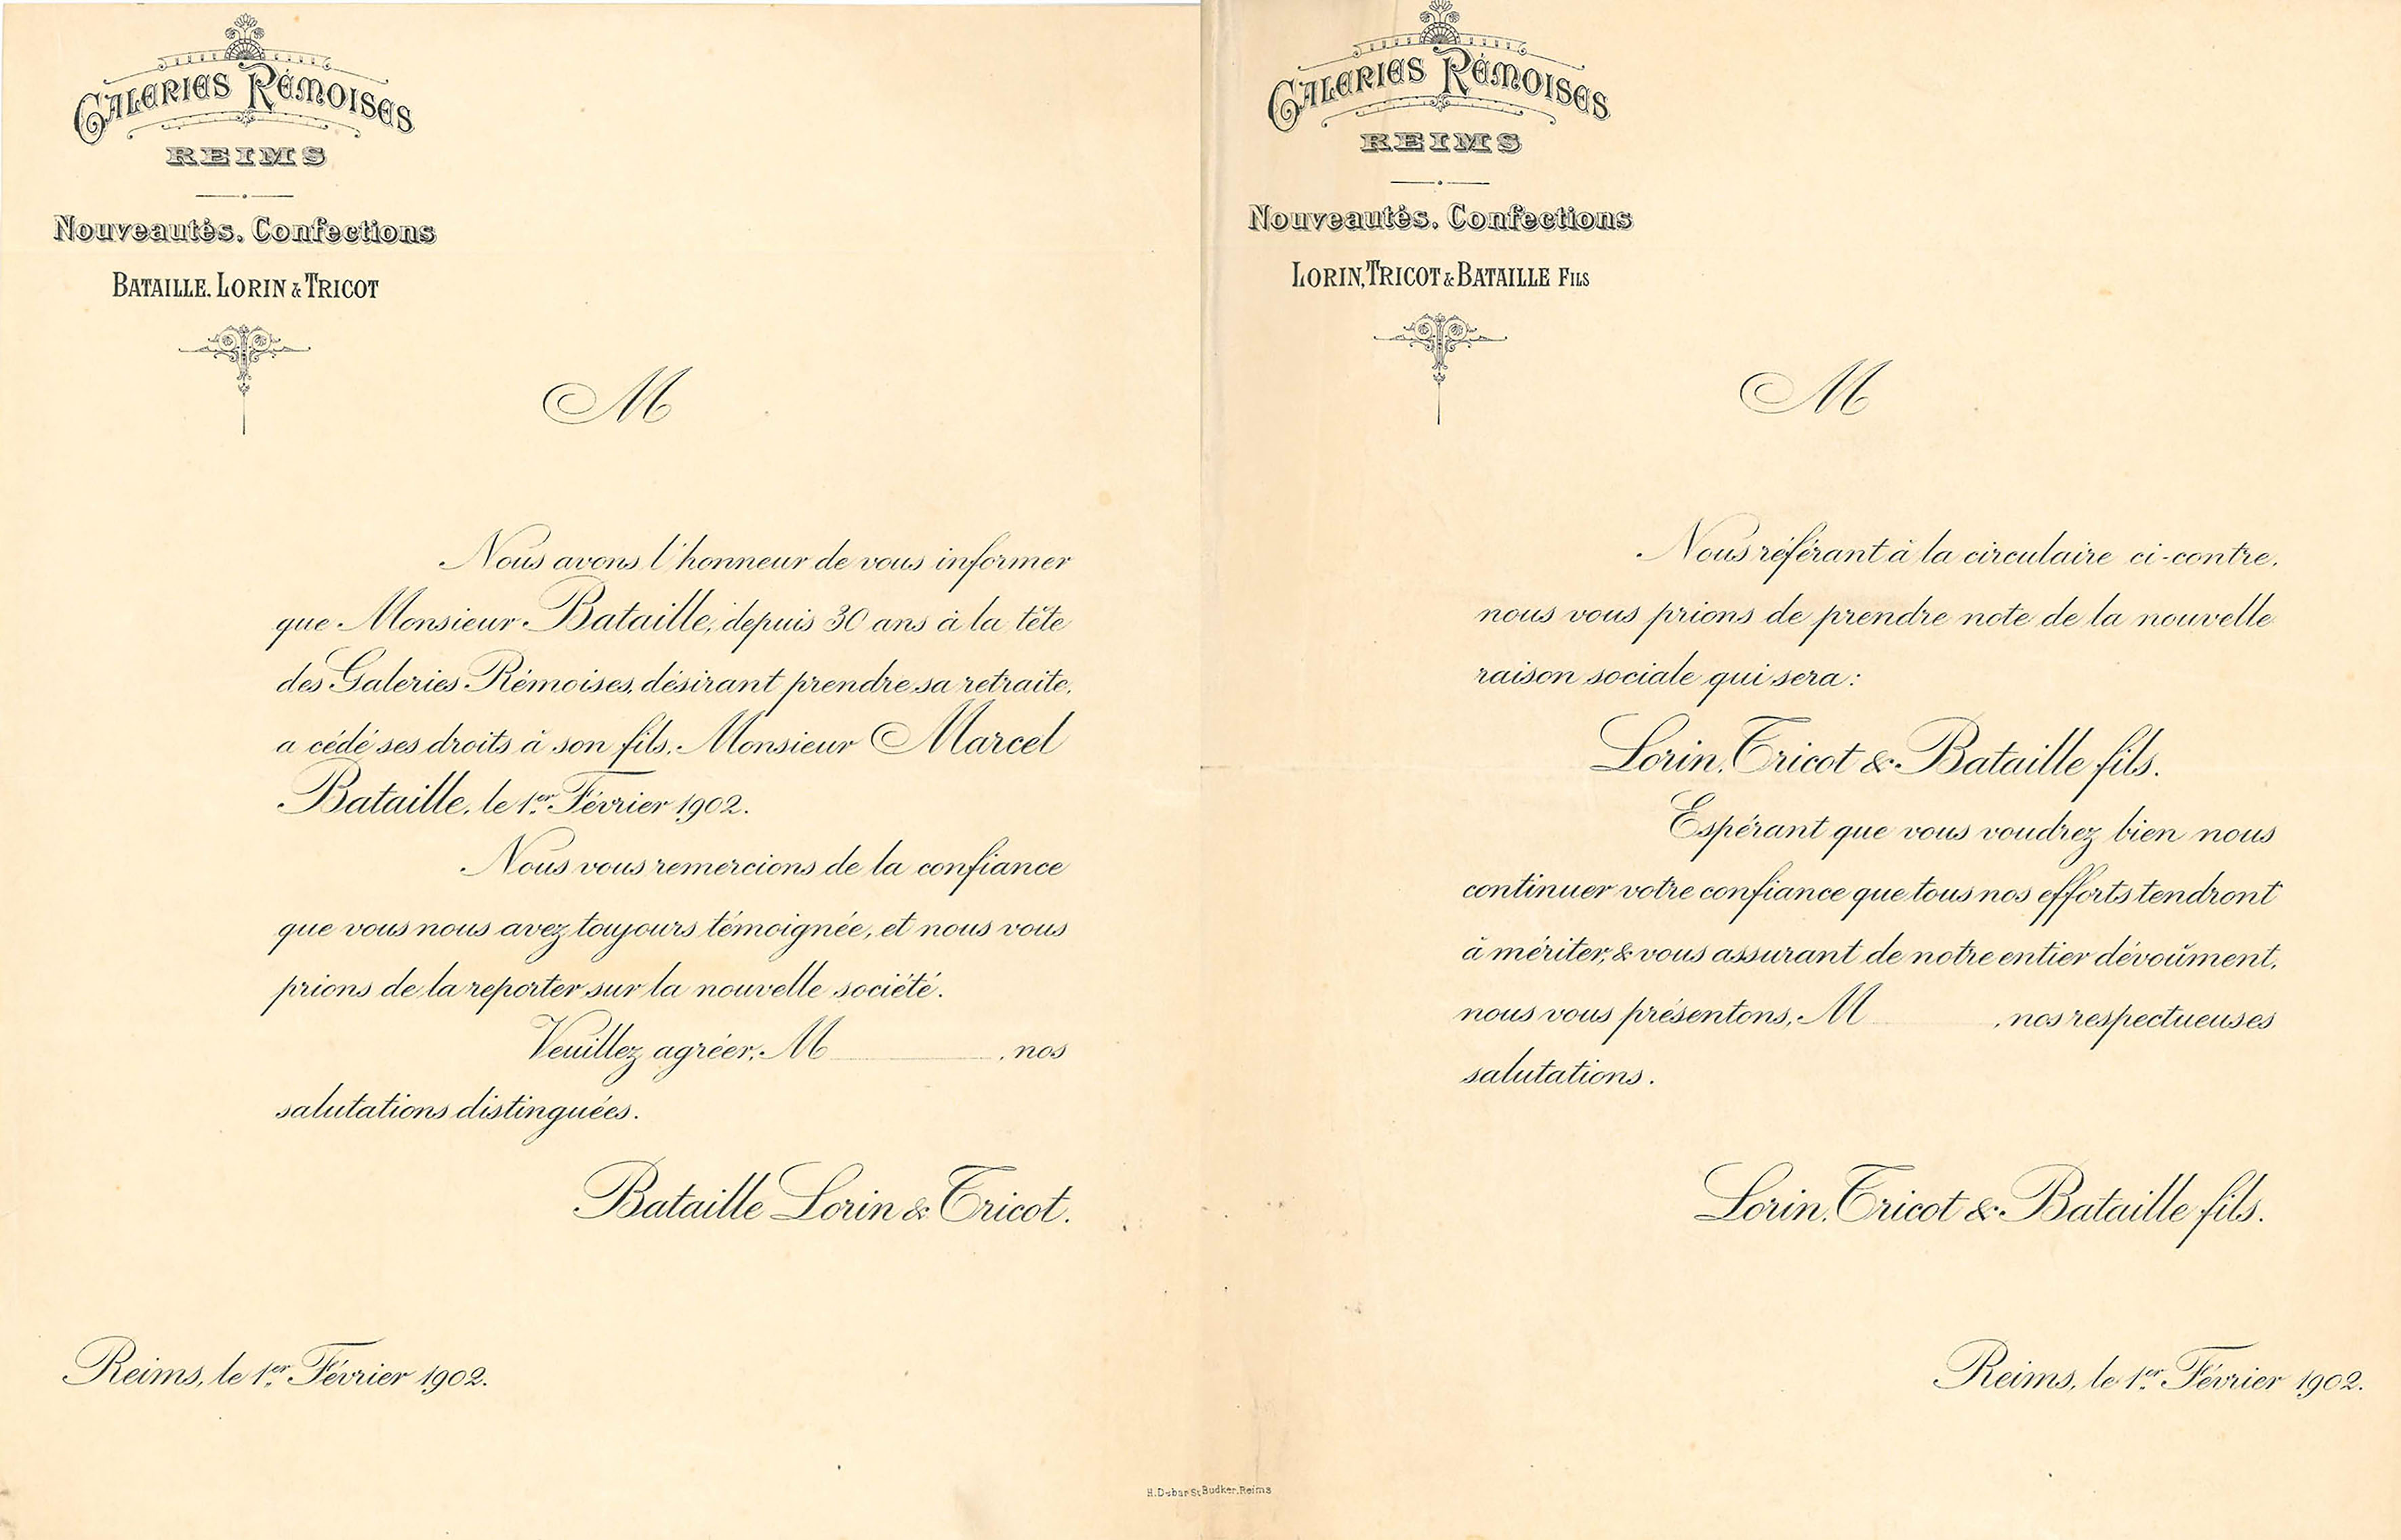 Galeries Rémoises
REIMS
Nouveautés. Confections
BATAILLE. LORIN & TRICOT
M
Nous avons l'honneur de vous informer
que Monsieur Bataille, depuis 30 ans à la tête
des Galeries Rémoises, désirant prendre sa retraite,
a cédé ses droits à son fils, Monsieur Marcel
Bataille, le 1er Février 1902.
Nous vous remercions de la confiance
que vous nous avez toujours témoignée, et nous vous
prions de la reporter sur la nouvelle société.
Veuillez agréer, M , nos
salutations distinguées.
Bataille Lorin & Tricot.
Reims, le 1er Février 1902.
Galeries Rémoises
REIMS
Nouveautés. Confections
LORIN, TRICOT & BATAILLE FILS
M
Nous référant à la circulaire ci-contre,
nous vous prions de prendre note de la nouvelle
raison sociale qui sera:
Lorin, Tricot & Bataille fils.
Espérant que vous voudrez bien nous
continuer votre confiance que tous nos efforts tendront
à mériter, & vous assurant de notre entier dévoûment,
nous vous présentons, M , nos respectueuses
salutations.
Lorin, Tricot & Bataille fils.
Reims, le 1er Février 1902.
Budker. Reims